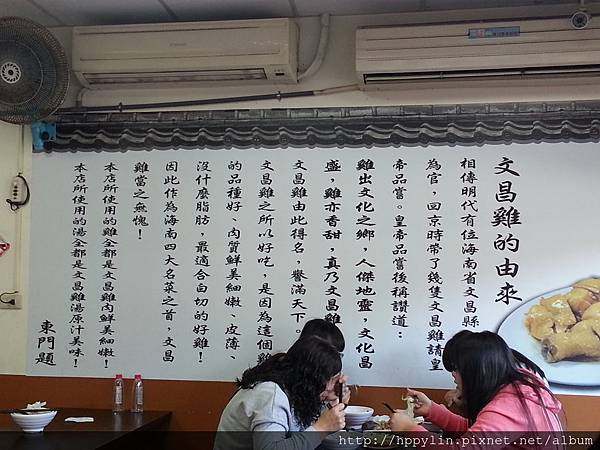 文昌雞的由來
相傳明代有位海南省文昌縣
為官，回京時帶了幾隻文昌雞請皇
帝品嘗。皇帝品嘗後稱讚道：
雞出文化之鄉，人傑地靈，文化昌
盛，雞亦香甜，真乃文昌雞
文昌雞由此得名，譽滿天下。
文昌雞之所以好吃，是因為這個雞
的品種好、肉質鮮美細嫩、皮薄、
沒什麼脂肪，最適合白切的好雞！
因此作為海南四大名菜之首，文昌
雞當之無愧！
本店所使用的雞全都是文昌雞肉鮮美細嫩！
本店所使用的湯全都是文昌雞湯原汁美味！
東門題
http://hppylin.pixnet.net/album